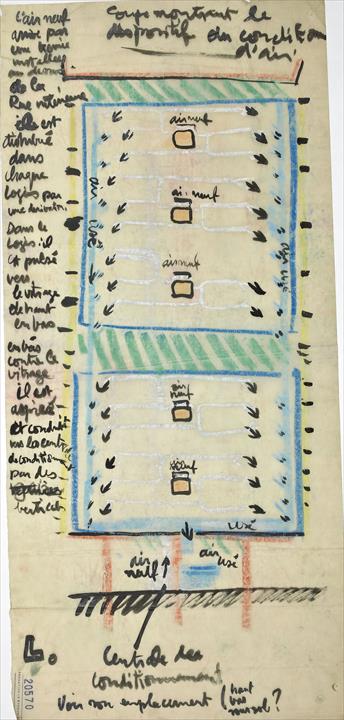 Coupe montrant le
dispositif du condition
d'air.
L'air neuf
arrive par
une
installée
au dessus
de la
Rue intérieure
il est
distribué
dans
chaque
logis par
une dérivation
Dans le
logis il
est pulsé
vers
le vitrage
de haut
en bas
en bas
contre le
vitrage
il est
aspiré
et conduit
vers la centr
de conditionnem
par des
verticales
air neuf
air neuf
air neuf
air usé
air usé
air
neuf
air neuf
usé
air
neuf
air
usé
Centrale de
conditionnement
Voir son emplacement (haut
bas
sous sol?
L.
20570